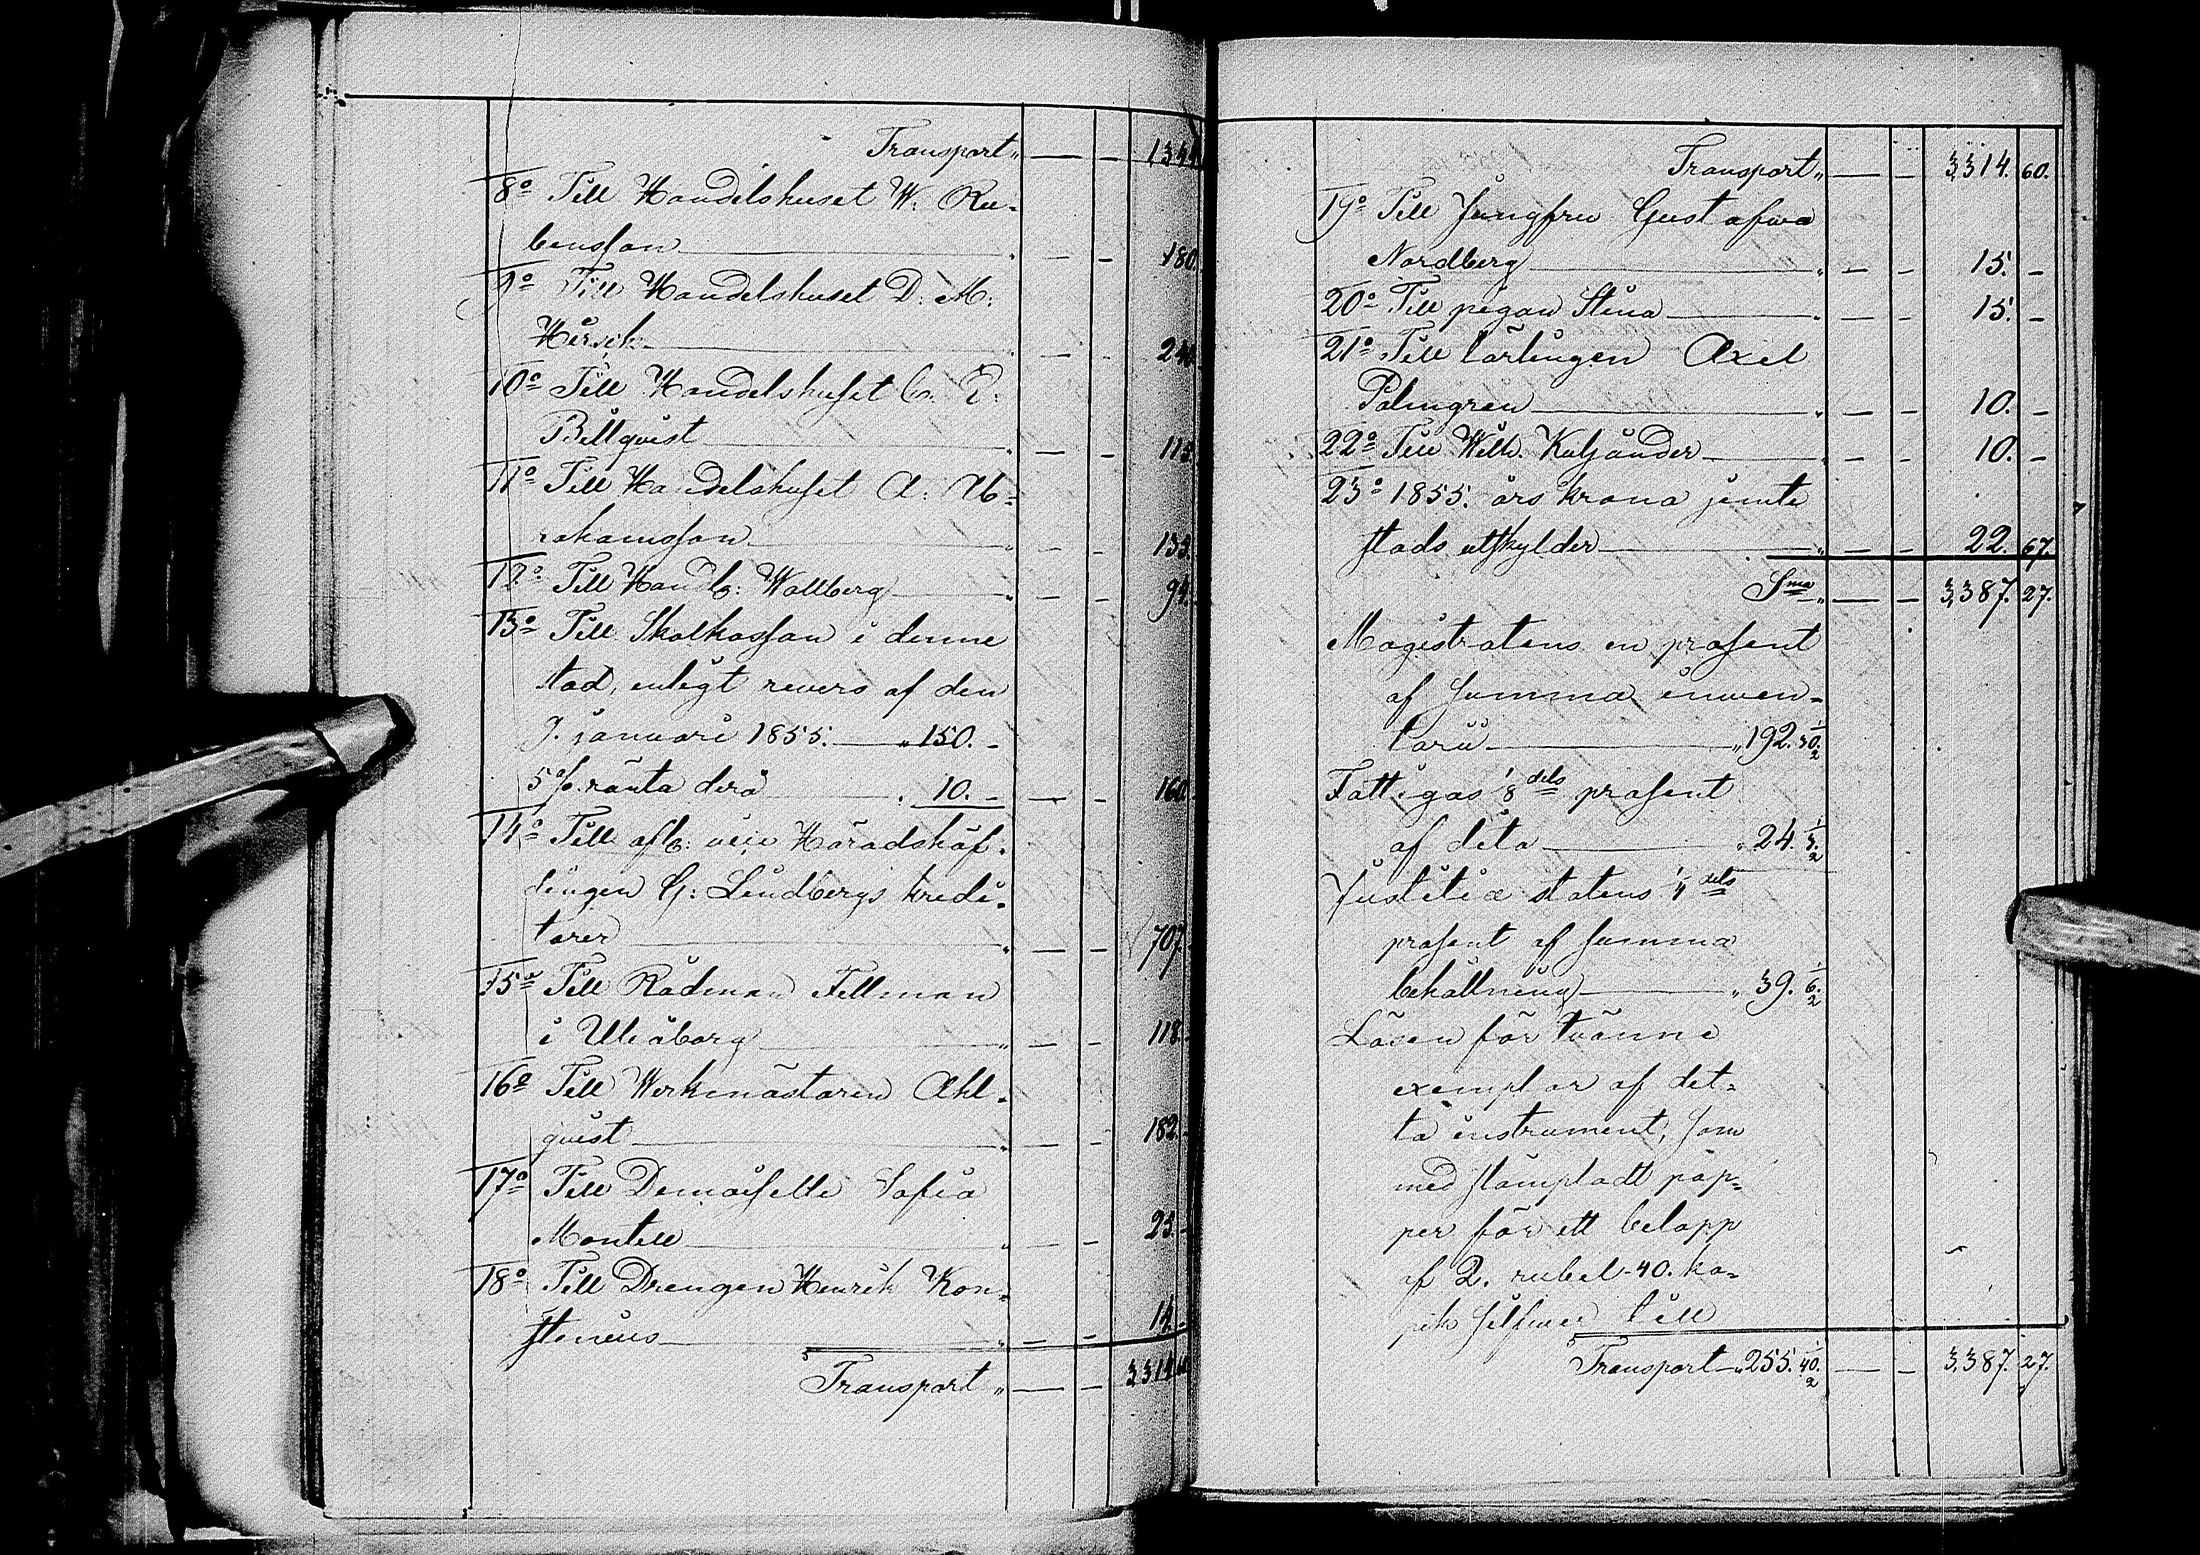 Transport „ — – 1344
8º Till Handelshuset W. Ru-
bensson — – 180.
9º Till Handelshuset D. M:
Hirsch — – 240
10º Till Handelshuset C. E.
Billqvist — – 115
11º Till Handelshuset A. Ab-
rahamsson — – 133.
12º Till Handl: Wallberg — – 94.
13º Till Skolkassan i denne
stad, enligt revers af den
9. januari 1855. — „ 150. –
5 % ränta derå „ 10. – — – 160.
14º Till afl: vice Häradshöf-
dingen G: Lindbergs kredi-
torer — – 707.
15º Till Rådman Fellman
i Uleåborg — – 118.
16º Till Werkmästaren Ahl-
qvist — – 182.
17º Till Demoiselle Sofia
Montell — – 23. –
18º Till Drengen Henrik Kon-
stenius — – 14. –
Transport „ — – 3,314. 60
Transport „ — – 3,314. 60.
19º Till Jungfru Gustafva
Nordberg — – 15. –
20º Till pigan Stina — – 15. –
21º Till lärlingen Axel
Palmgren — – 10. –
22º Till Wilh. Kuljander — – 10. –
23º 1855. års krono jemte
stads utskylder — – 22. 67.
Sma „ — – 3,387. 27.
Magistratens en prosent
af summa inven-
tarii — „ 192. 30 1/2
Fattigas 1/8 dels prosent
af dito — „ 24. 3 1/2
Justitiæ statens 1/4 dels
prosent af summa
behållning — „ 39. 6 1/2
Lösen för tvänne
exemplar af det-
ta instrument, som
med stämpladt pap-
per för ett belopp
af 2. rubel 40. ko-
pek silfver till
Transport „ 255. 40 1/2 — – 3,387. 27.